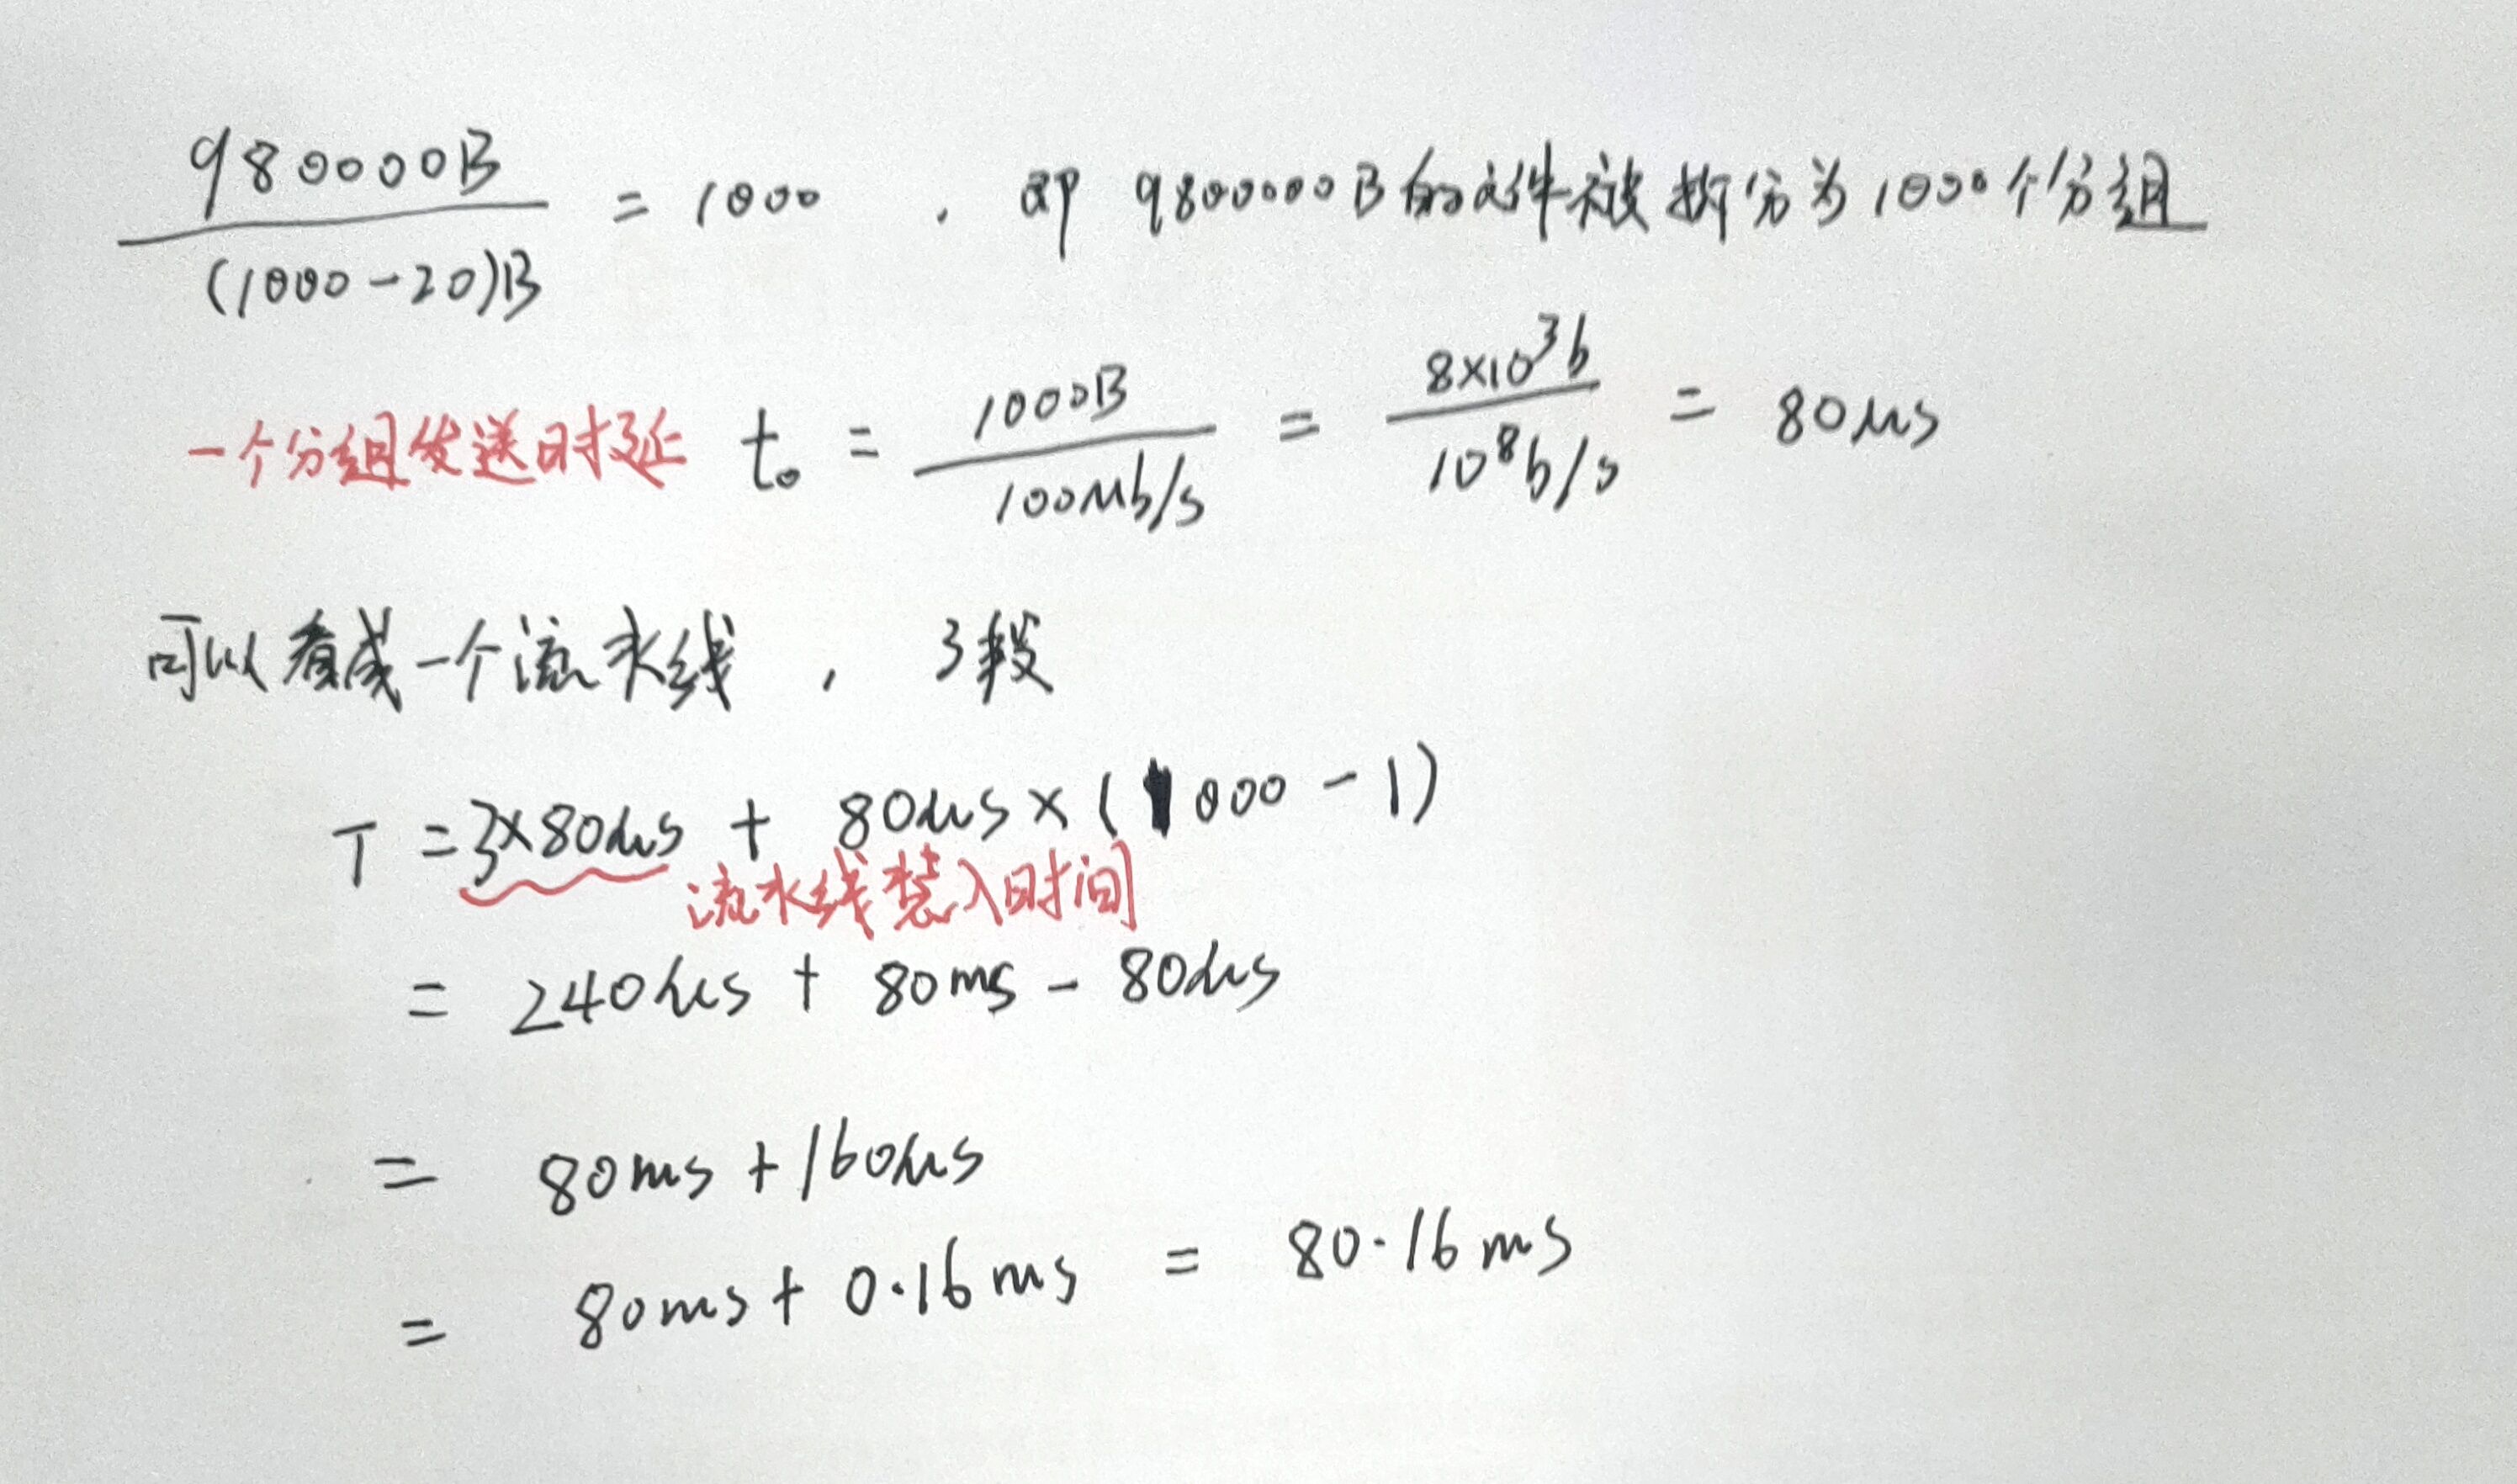 980000B / (1000-20)B = 1000 , 即 9800000B的文件被拆分为1000个分组
一个分组发送时延 t₀ = 1000B / 100Mb/s = 8×10³b / 10⁸b/s = 80μs
可以看成一个流水线 , 3段
T = 3×80μs + 80μs×(1000-1)
流水线装入时间
= 240μs + 80ms - 80μs
= 80ms + 160μs
= 80ms + 0.16ms = 80.16ms